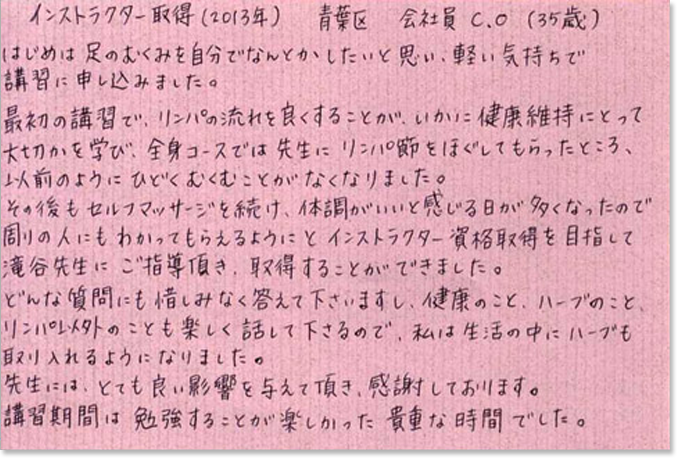 インストラクター取得(2013年) 青葉区 会社員 C.O (35歳)
はじめは足のむくみを自分でなんとかしたいと思い、軽い気持ちで
講習に申し込みました。
最初の講習で、リンパの流れを良くすることが、いかに健康維持にとって
大切かを学び、全身コースでは先生にリンパ節をほぐしてもらったところ、
以前のようにひどくむくむことがなくなりました。
その後もセルフマッサージを続け、体調がいいと感じる日が多くなったので
周りの人にもわかってもらえるようにとインストラクター資格取得を目指して
滝谷先生にご指導頂き、取得することができました。
どんな質問にも惜しみなく答えて下さいますし、健康のこと、ハーブのこと、
リンパ以外のことも楽しく話して下さるので、私は生活の中にハーブも
取り入れるようになりました。
先生には、とても良い影響を与えて頂き、感謝しております。
講習期間は勉強することが楽しかった貴重な時間でした。